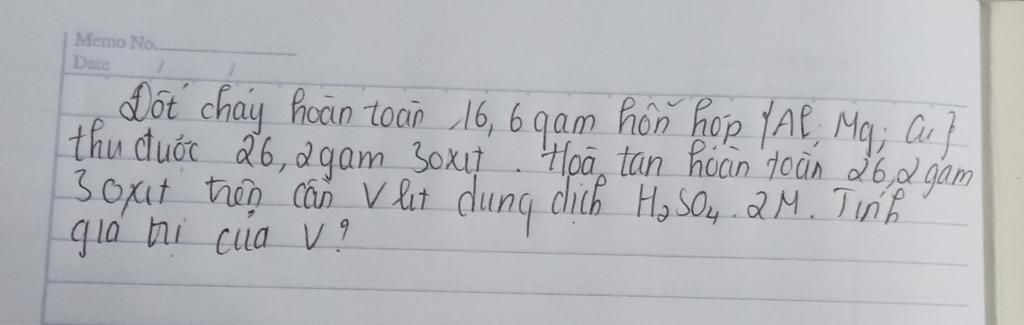 Memo No.
Date / /
Đốt cháy hoàn toàn 16,6gam hỗn hợp {Al; Mg; Cu}
thu được 26,2gam 3oxit. Hoà tan hoàn toàn 26,2gam
3oxit trên cần V lít dung dịch H₂SO₄ 2M. Tính
giá trị của V?